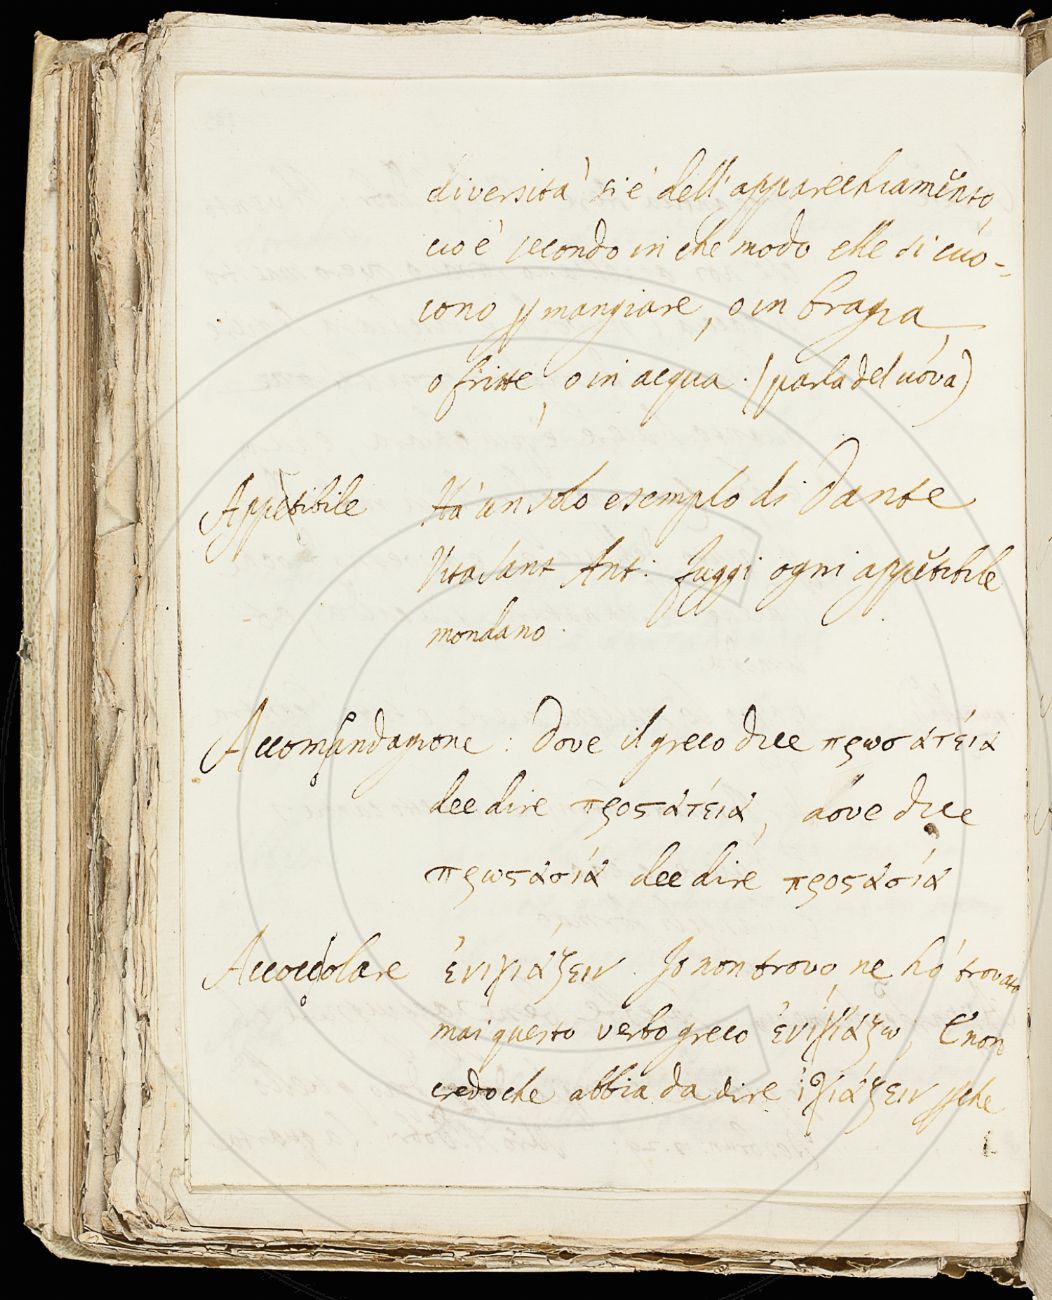 diversità si è dell'apparecchiamẽnto,
cio è secondo in che modo elle si cuo-
cono p mangiare, o in bragia,
o fritte, o in acqua. (parla del uóva)
Appetibile Hà un solo esemplo di Dante
Vita Sant Ant: fuggi ogni appetibile
mondano.
Accomandagione: Doue il greco dice πρωσατέια
dee dire προσατειά, doue dice
πρωσασία dee dire προσασία
Accoccolare ἐνιγιάζειν. Io non trovo, ne hò trovato
mai questo verbo greco ἐνιγιάζω, E non
credo che abbia da dire ἰγιάζειν pche